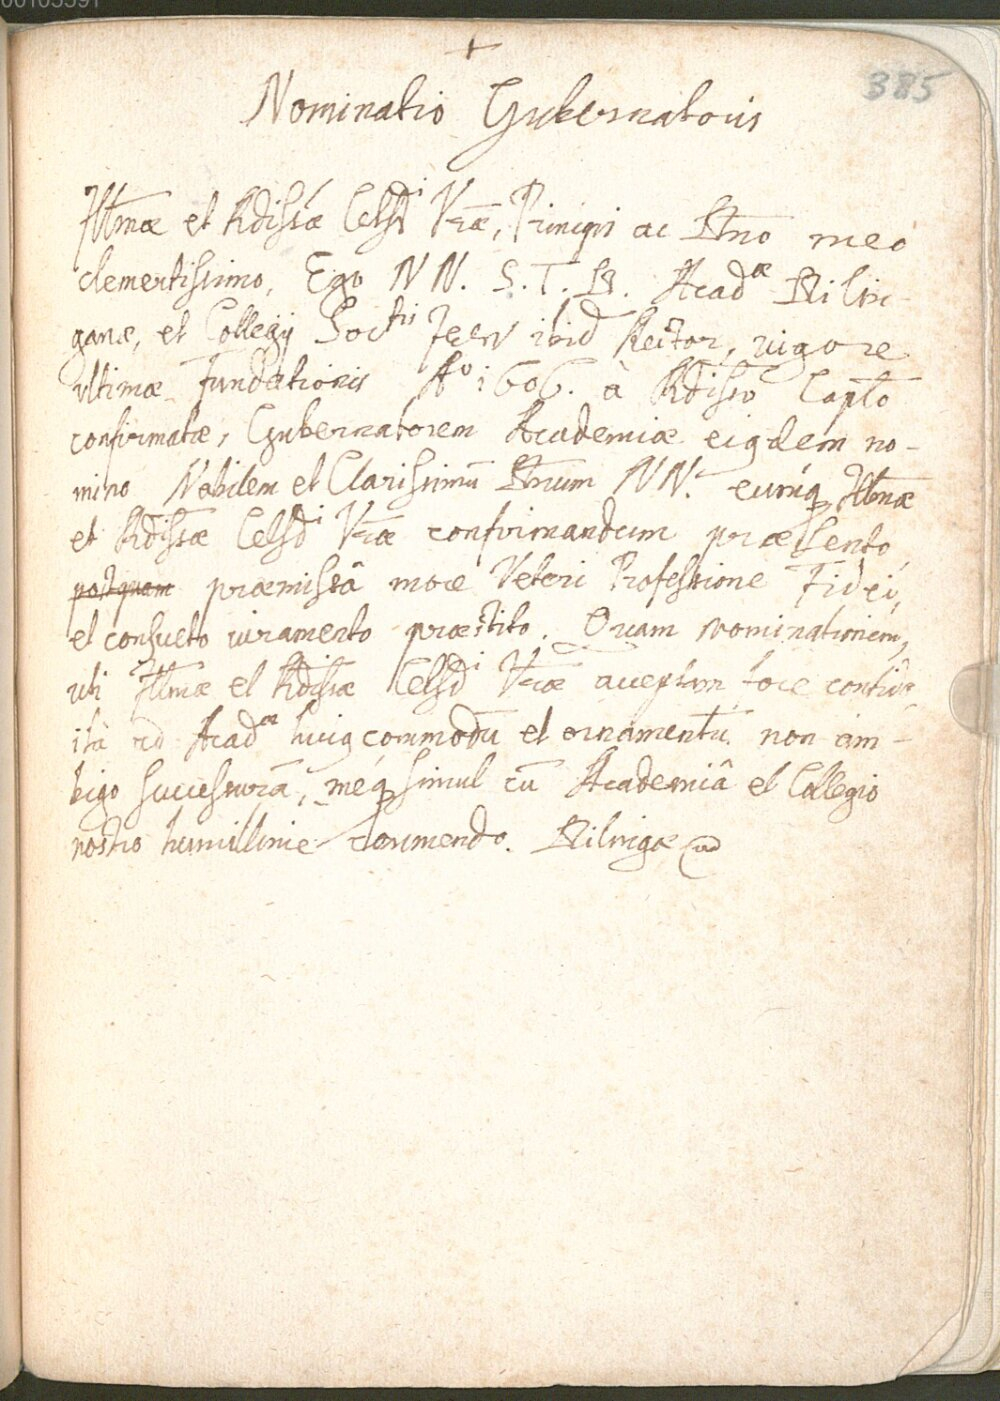 +
385
Nominatio Gubernatoris
Illmæ et Rdissæ Celsdi Vræ, Principi ac Dno meo
clementissimo, Ego NN. S. T. D. Acadæ Dilin-
ganæ, et Collegij Soctis Jesu ibid Rector, vigore
ultimæ Fundationis Ao 1606. à Rdisso Caplo
confirmatæ, Gubernatorem Academiæ eiusdem no-
mino Nobilem et Clarissimũ Dnum NN. eumq̃ Illmæ
et Rdissæ Celsdi Vræ confirmandum præsento,
postquam præmissâ more Veteri Professione Fidei,
et consueto iuramento præstito. Quam nominationem,
uti Illmæ et Rdissæ Celsdi Vræ acceptam fore confido,
ità ad Acadæ huius commodũ et ornamentũ non am-
bigo successurã, meq̃ simul cũ Academiâ et Collegio
nostro humillime commendo. Dilingæ